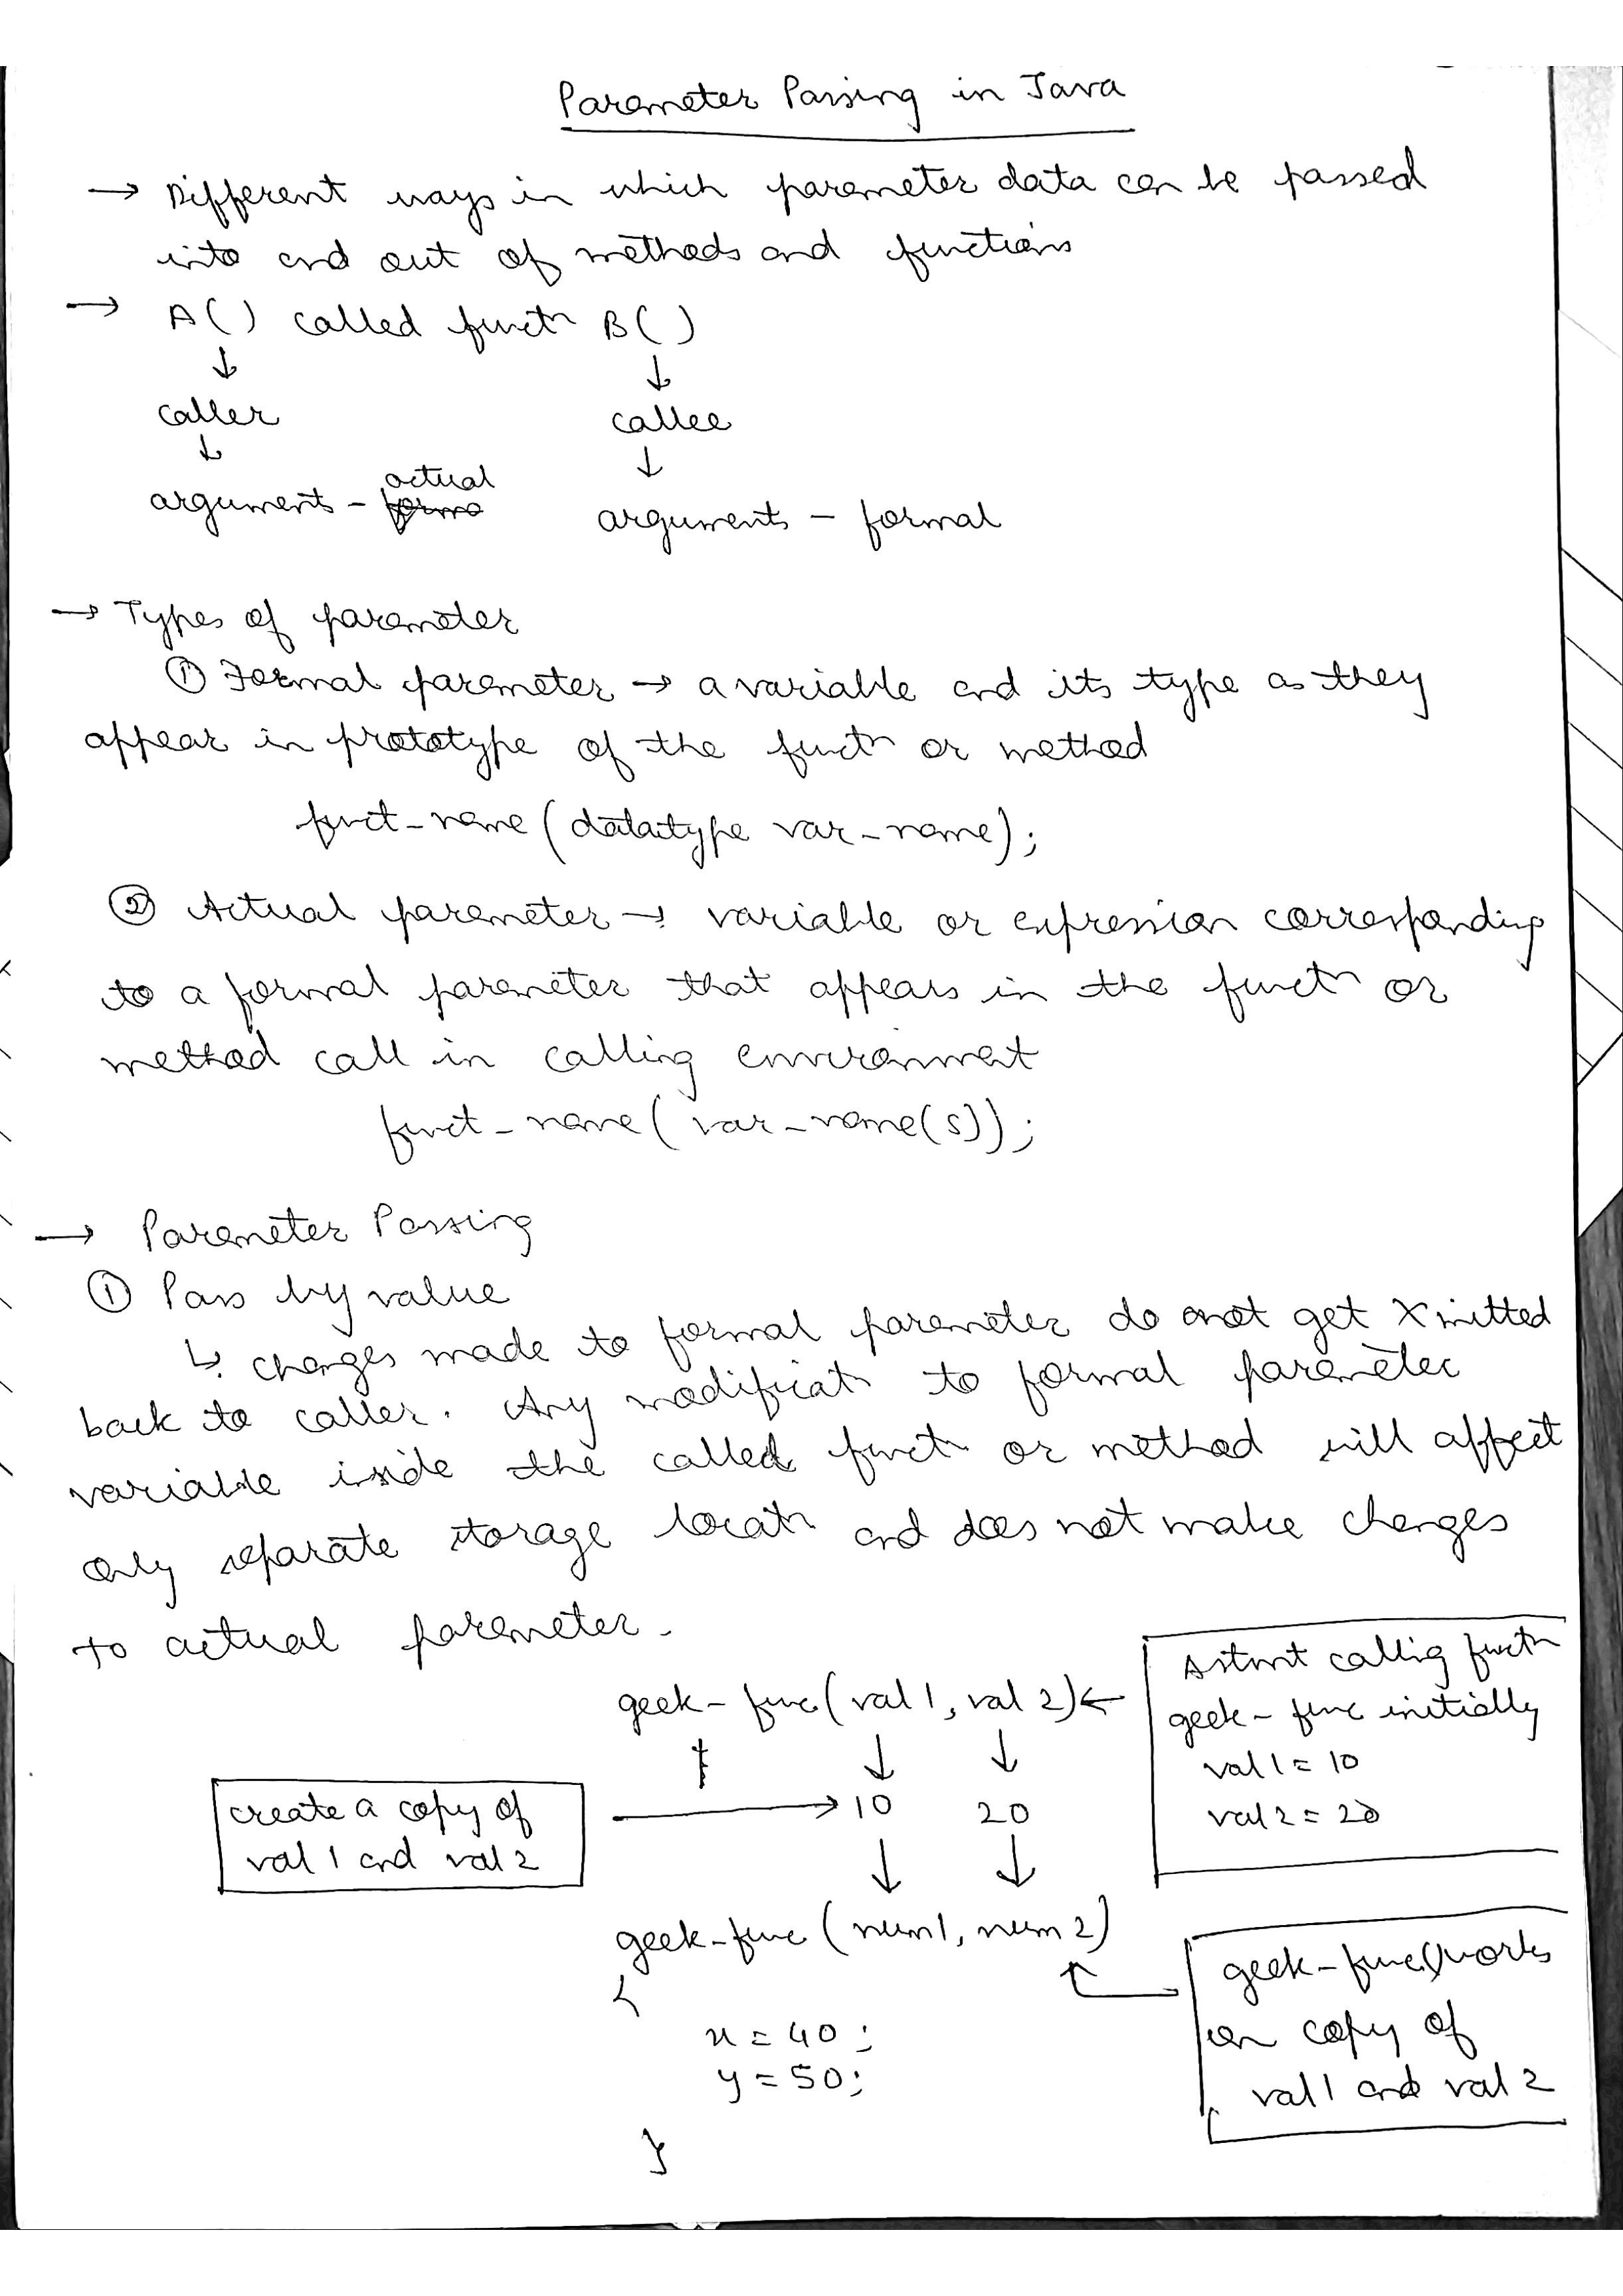 Parameter Passing in Java
→ Different ways in which parameter data can be passed
into and out of methods and functions
→ A() called functn B()
↓ ↓
caller callee
↓ ↓
arguments - actual arguments - formal
→ Types of parameter
① Formal parameter → a variable and its type as they
appear in prototype of the functn or method
funct_name(datatype var_name);
② Actual parameter → variable or expression corresponding
to a formal parameter that appears in the functn or
method call in calling environment
funct_name(var_name(s));
→ Parameter Passing
① Pass by value
↳ changes made to formal parameter do not get Xmitted
back to caller. Any modificatn to formal parameter
variable inside the called functn or method will affect
only separate storage locatn and does not make changes
to actual parameter.
geek-func(val1, val2) ←
At start calling functn
geek-func initially
val1 = 10
val2 = 20
↓ ↓
create a copy of
val1 and val2
→ 10 20
↓ ↓
geek-func (num1, num2)
geek-func() works
on copy of
val1 and val2
{
x = 40;
y = 50;
}